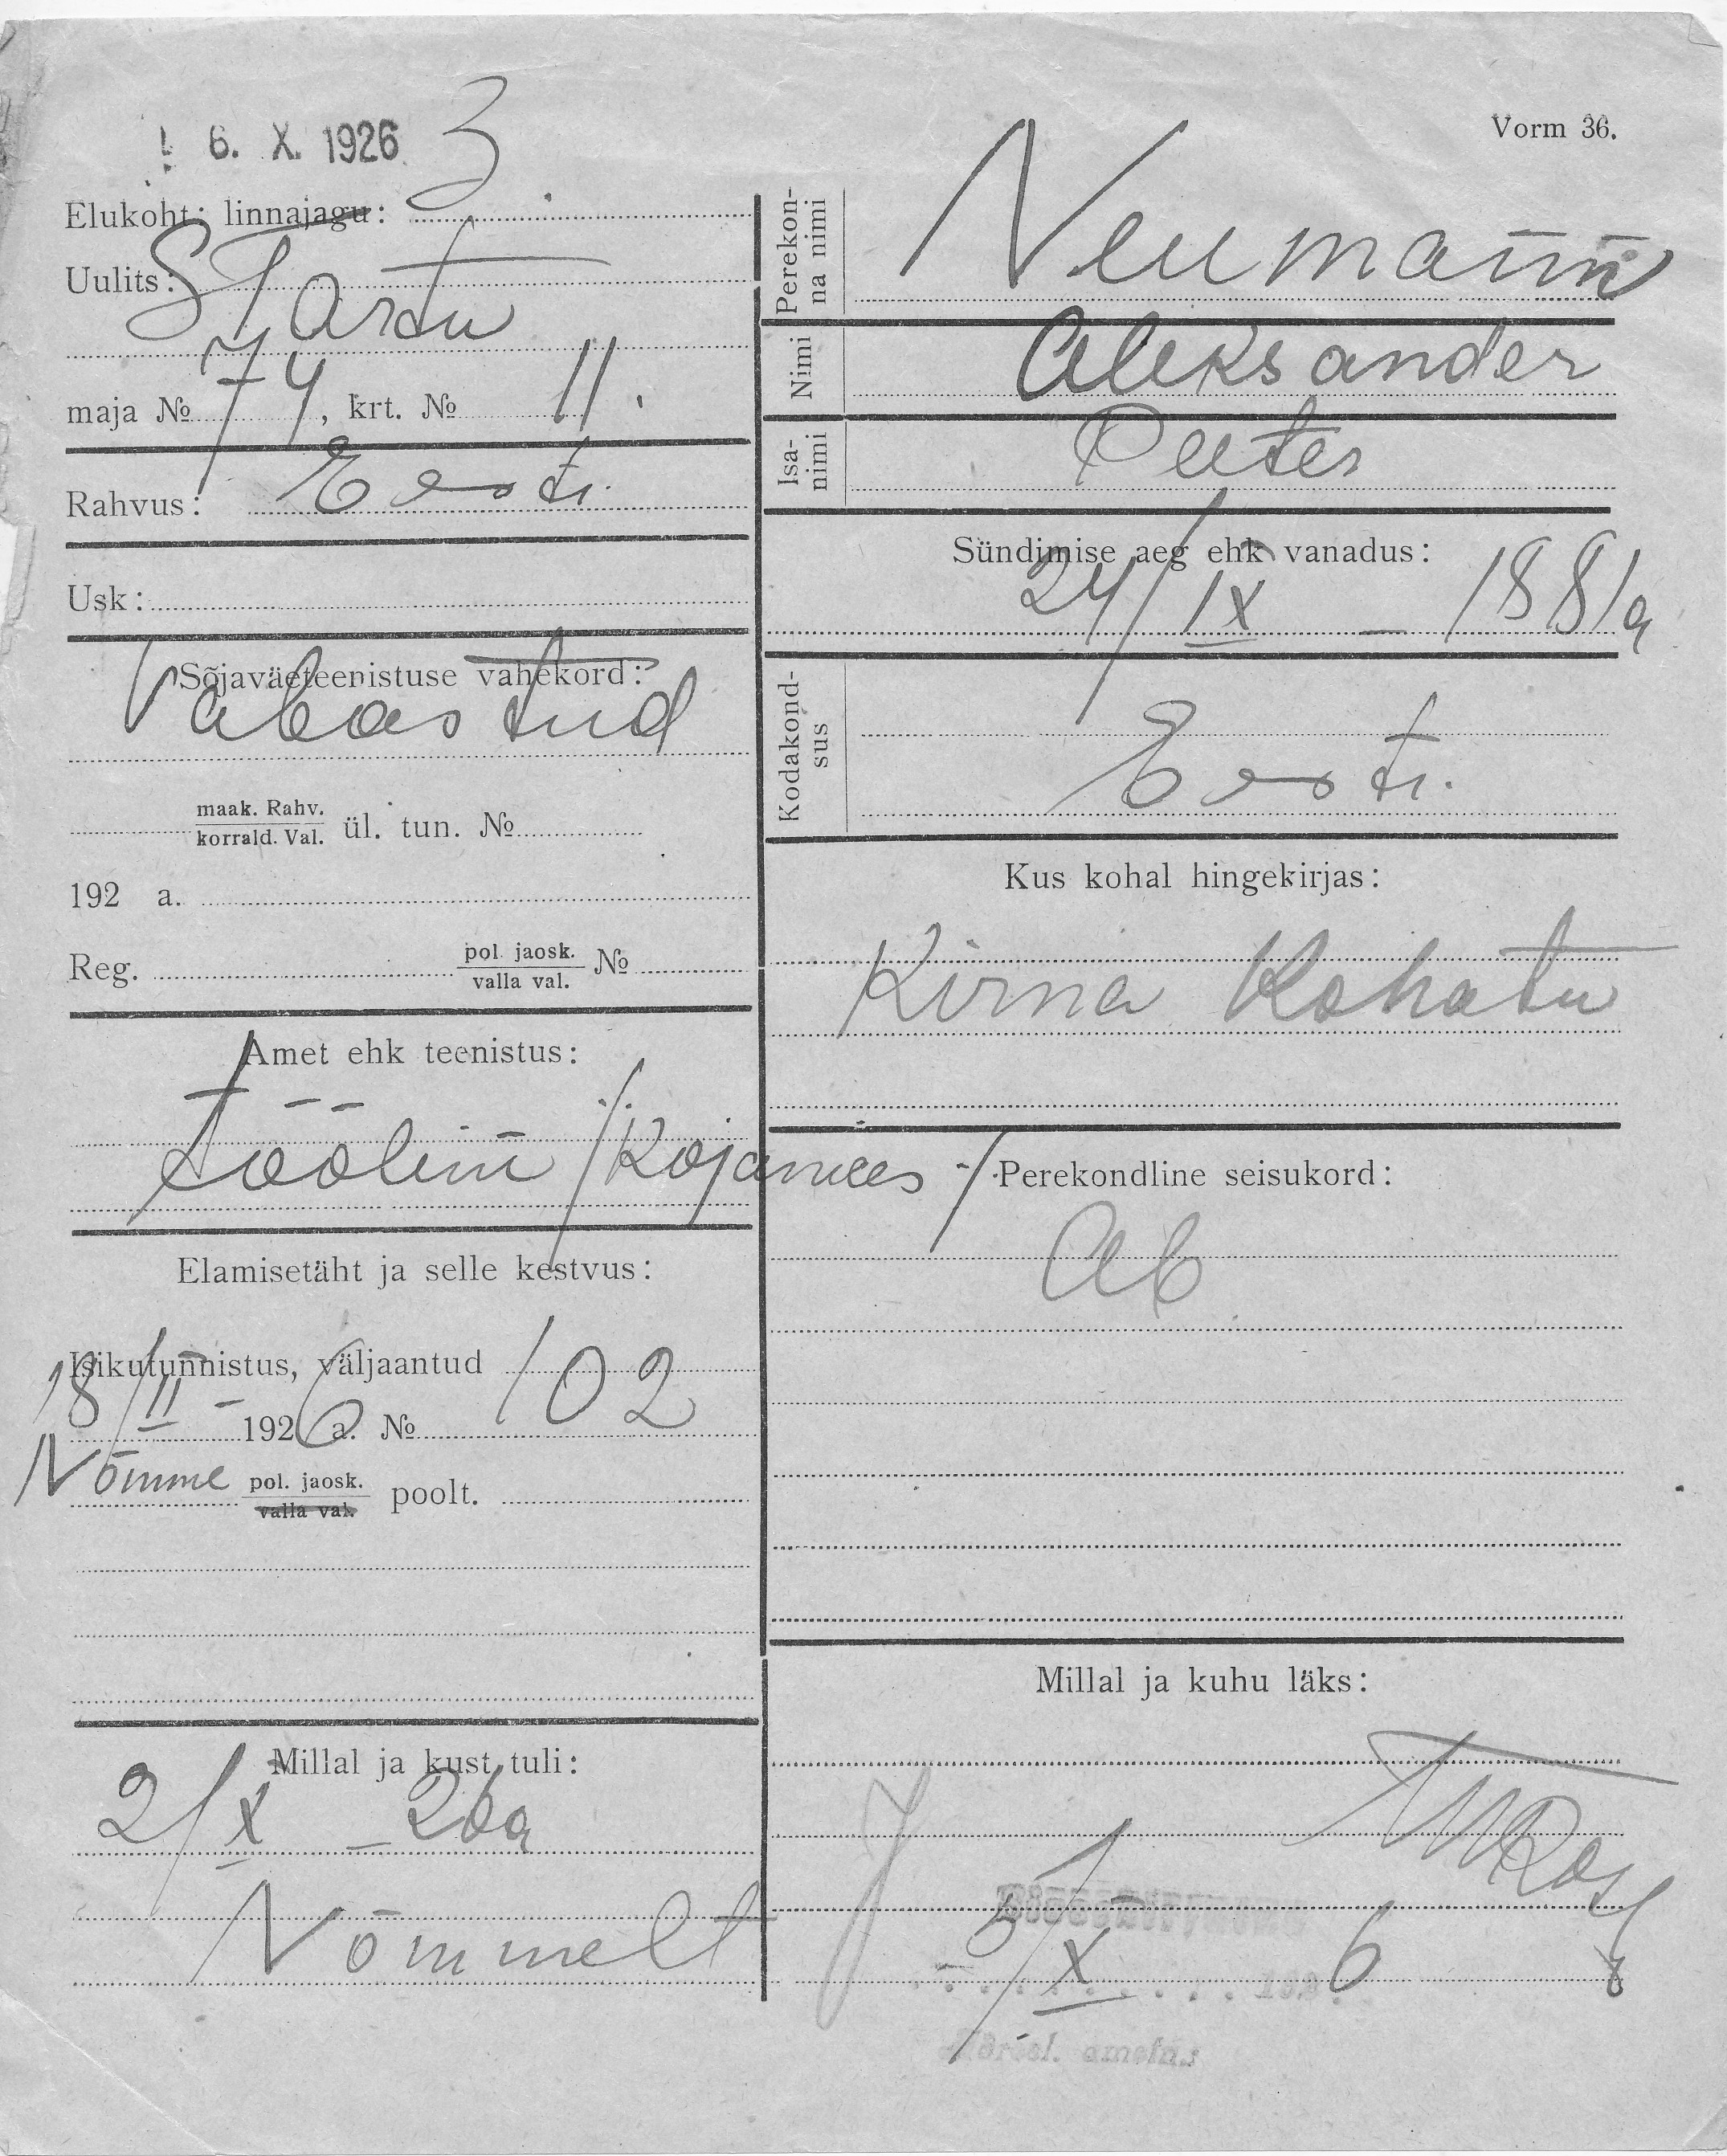 6. X. 1926
3
Vorm 36.
Elukoht: linnajagu:
Uulits: S Tartu
maja № 74, krt. № 11.
Rahvus: Eesti
Usk:
Sõjaväeteenistuse vahekord:
Vabastud
maak. Rahv.
korrald. Val. ül. tun. №
192 a.
Reg. pol. jaosk. №
valla val.
Amet ehk teenistus:
Töölin /Kojamees/
Elamisetäht ja selle kestvus:
Isikutunnistus, väljaantud 102
18/II - 1926 a. №
Nõmme pol. jaosk. poolt.
valla val.
Millal ja kust tuli:
2/X - 26a
Nõmmelt
Perekonna nimi
Neumann
Nimi
Aleksander
Isanimi
Peeter
Sündimise aeg ehk vanadus:
24/IX - 1881a
Kodakondsus
Eesti.
Kus kohal hingekirjas:
Kirna Kohatu
Perekondline seisukord:
Ab
Millal ja kuhu läks:
5/X 6